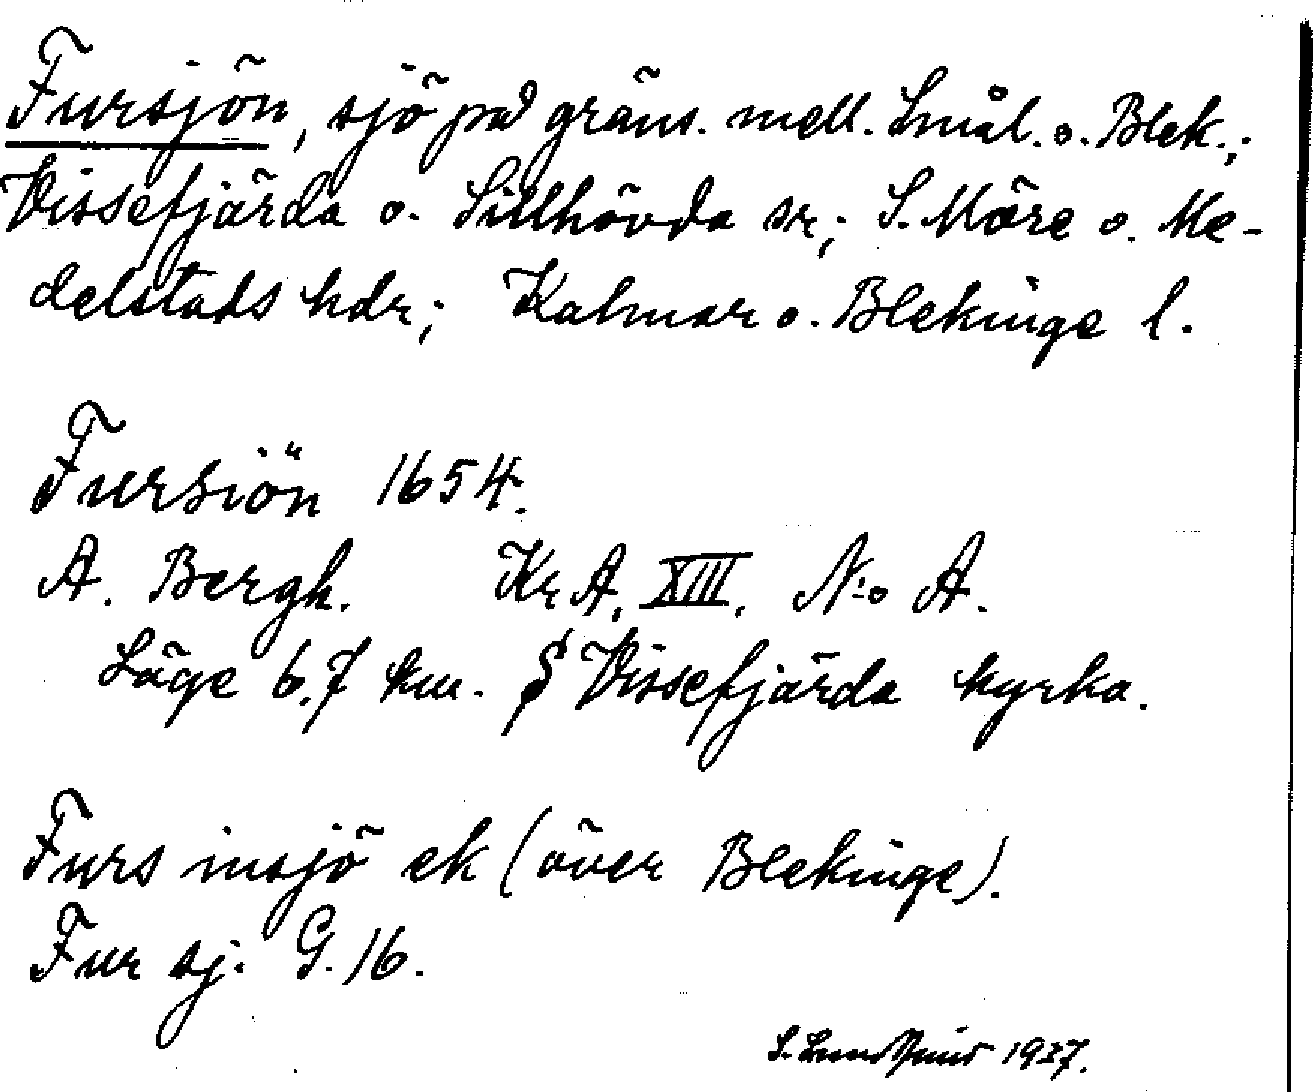 Fursjön, sjö på gräns. mell. Smål. o. Blek.;
Vissefjärda o. Sillhövda sr; S. Möre o. Me-
delstads hdr; Kalmar o. Blekinge l.
Fursiön 1654.
A. Bergh. Kr A. XIII. N:o A.
Läge 6,7 km. S Vissefjärda kyrka.
Furs insjö ek (över Blekinge).
Fur sj. G. 16.
S. 1937.